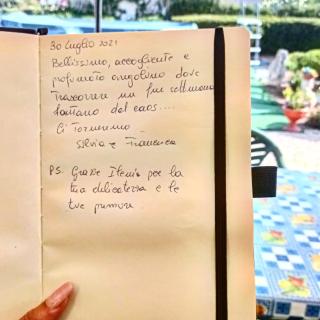 30 LUGLIO 2021
Bellissimo, accogliente e
profumato angolino dove
Trascorrere un fine settimana
lontano dal caos....
Ci Torneremo
Silvia e Francesca
P.S. Grazie Ilenia per la
tua delicatezza e le
tue premure.